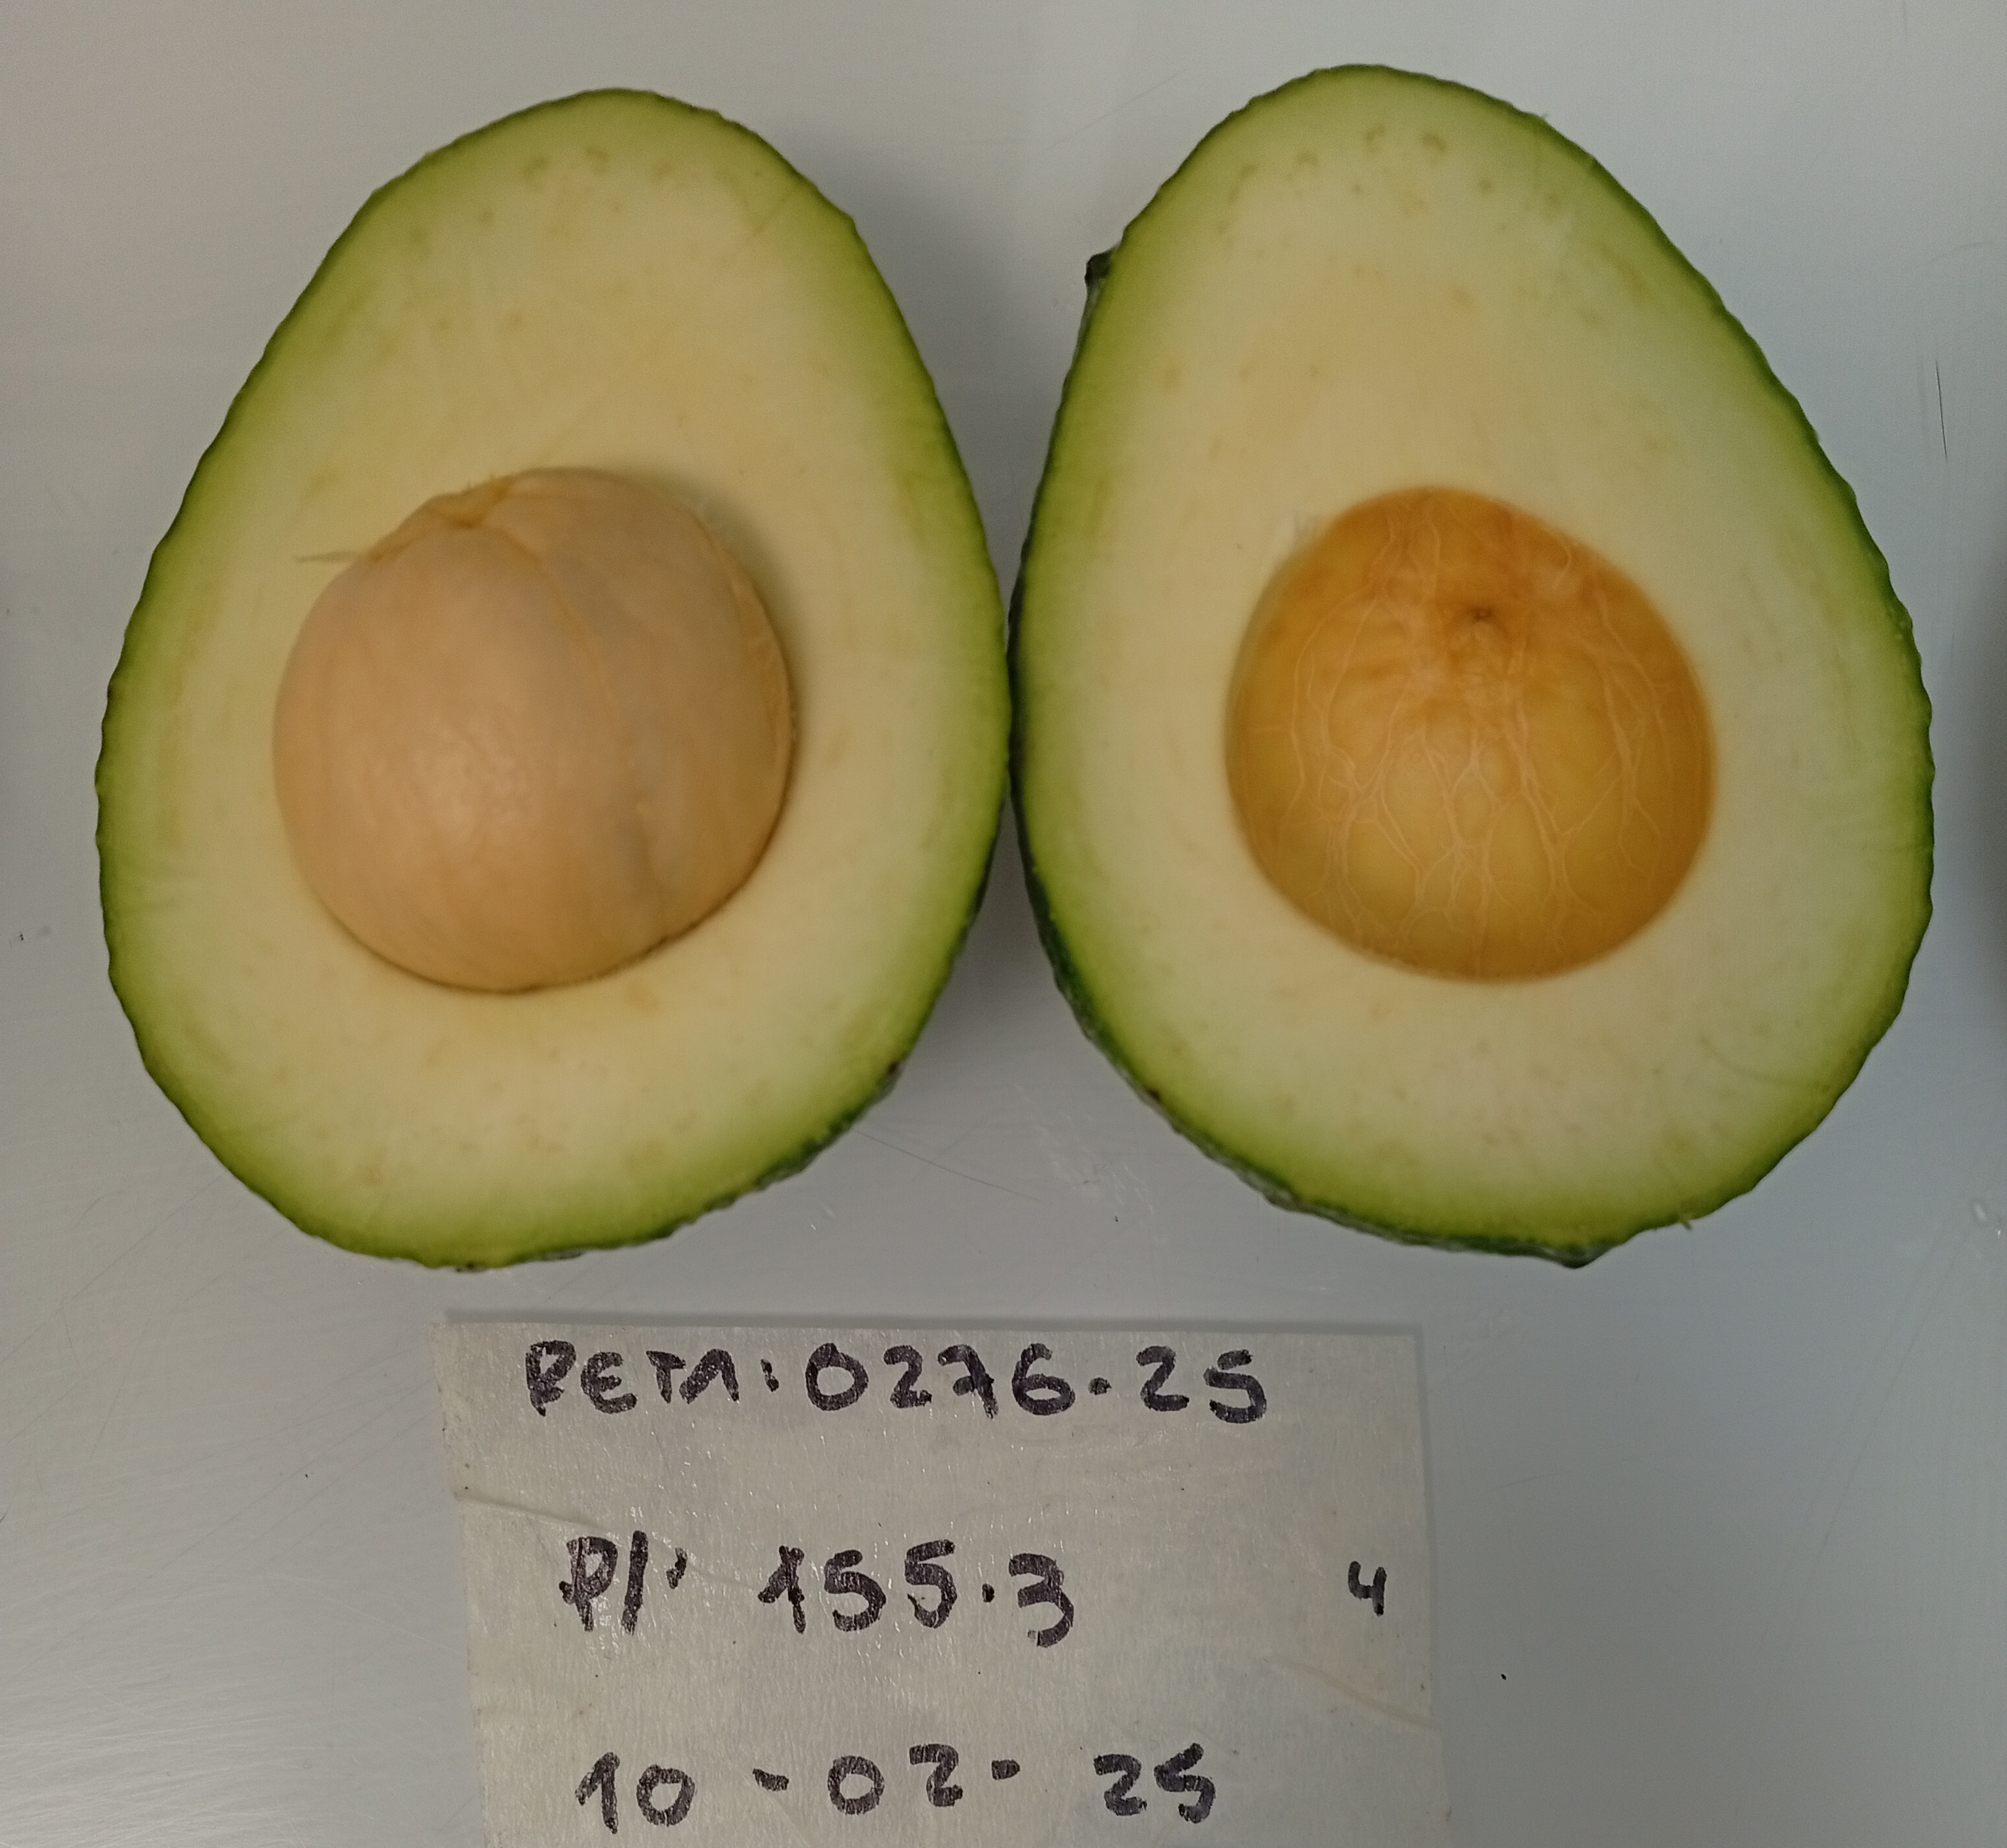 PETA: 0276-25
P/: 155.3 4
10-02-25